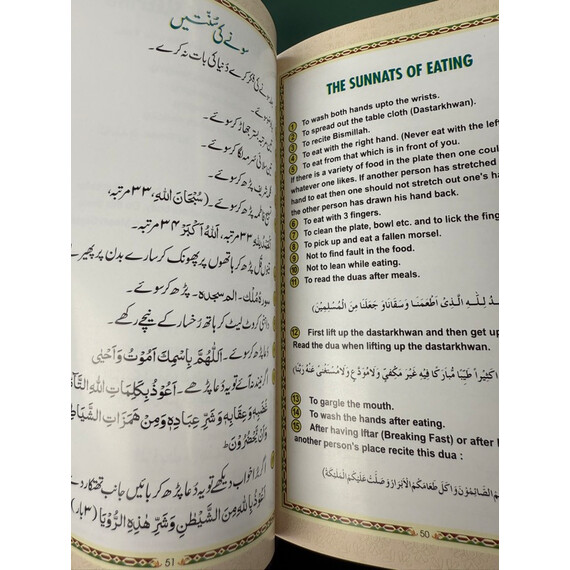 سونے کی سُنّتیں
کرے دُنیا کی بات نہ کرے۔
بستر جھاڑ کر سوئے۔
سُرمہ لگا کر سوئے۔
پڑھ کر سوئے۔
پڑھ کر سوئے۔ (سُبْحَانَ اللّٰهِ، ۳۳ مرتبہ،
۳۳ مرتبہ، اَللّٰهُ اَكْبَرْ ۳۴ مرتبہ۔
قُل پڑھ کر ہاتھوں پر پھونک کر سارے بدن پر پھیرے
سورہ مُلک۔ الم سجدہ۔ پڑھ کر سوئے۔
داہنی کروٹ لیٹ کر ہاتھ رُخسار کے نیچے رکھے۔
دُعا پڑھ کر سوئے۔ اَللّٰهُمَّ بِاسْمِكَ اَمُوْتُ وَاَحْيٰى
تو یہ دُعا پڑھے۔ اَعُوْذُ بِكَلِمَاتِ اللّٰهِ
غَضَبِهٖ وَعِقَابِهٖ وَشَرِّ عِبَادِهٖ وَمِنْ هَمَزَاتِ
وَاَنْ يَّحْضُرُوْنِ
خواب دیکھے تو یہ دُعا پڑھ کر بائیں جانب تھتکار دے
اَعُوْذُ بِاللّٰهِ مِنَ الشَّيْطٰنِ وَشَرِّ هٰذِهِ الرُّوْيَا (۳ بار)
51
THE SUNNATS OF EATING
1 To wash both hands upto the wrists.
2 To spread out the table cloth (Dastarkhwan).
3 To recite Bismillah.
4 To eat with the right hand. (Never eat with the left
5 To eat from that which is in front of you.
If there is a variety of food in the plate then one could
whatever one likes. If another person has stretched
hand to eat then one should not stretch out one's
the other person has drawn his hand back.
6 To eat with 3 fingers.
7 To clean the plate, bowl etc. and to lick the fing
8 To pick up and eat a fallen morsel.
9 Not to find fault in the food.
10 Not to lean while eating.
11 To read the duas after meals.
لِلّٰهِ الَّذِىْ اَطْعَمَنَا وَسَقَانَا وَ جَعَلَنَا مِنَ الْمُسْلِمِيْنَ)
12 First lift up the dastarkhwan and then get up
Read the dua when lifting up the dastarkhwan.
كَثِيْرًا طَيِّبًا مُّبَارَكًا فِيْهِ غَيْرَ مَكْفِيٍّ وَلَا مُوَدَّعٍ وَّلَا مُسْتَغْنًى عَنْهُ رَبَّنَا)
13 To gargle the mouth.
14 To wash the hands after eating.
15 After having Iftar (Breaking Fast) or after
another person's place recite this dua :
الصَّائِمُوْنَ وَاَكَلَ طَعَامَكُمُ الْاَبْرَارُ وَصَلَّتْ عَلَيْكُمُ الْمَلٰٓئِكَةُ)
50